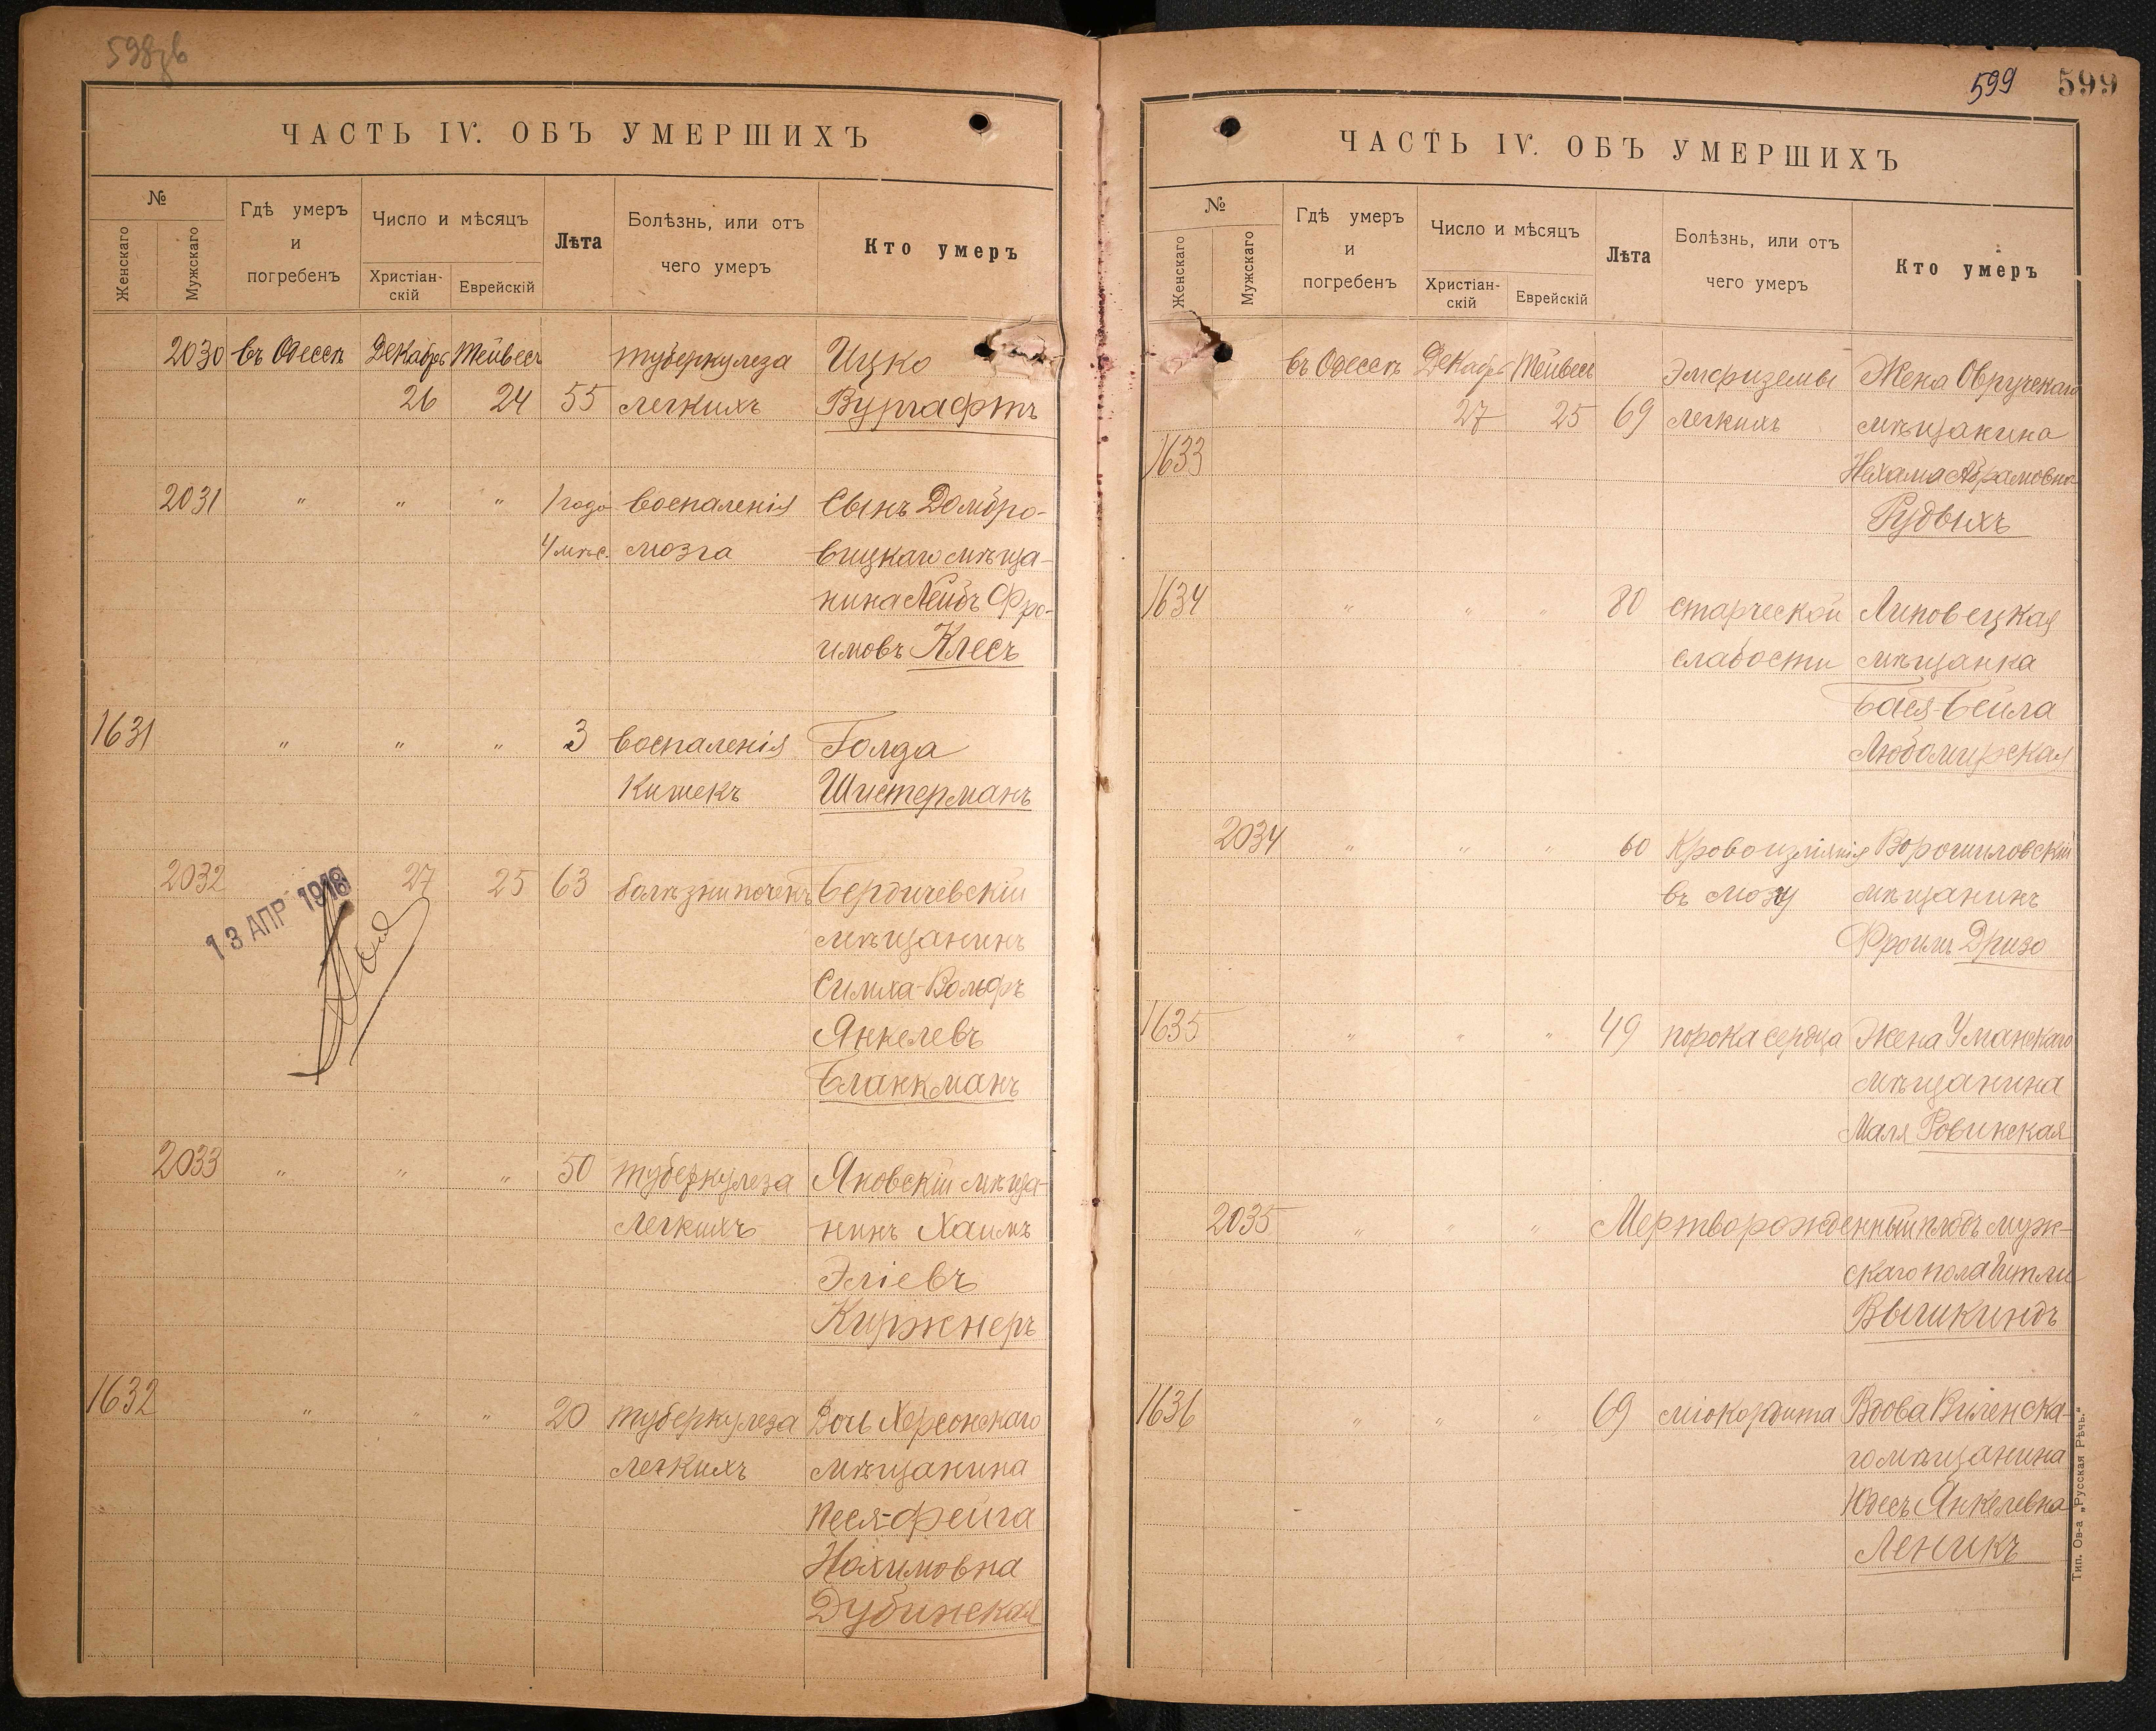 598
ЧАСТЬ IV. ОБЪ УМЕРШИХЪ
№
Женскаго
Мужскаго
Гдѣ умеръ
и
погребенъ
Число и мѣсяцъ
Христіан-
скій
Еврейскій
Лѣта
Болѣзнь, или отъ
чего умеръ
Кто умеръ
2030 въ Одессѣ Декабрь Тейвесъ туберкулеза Ицко
26 24 55 легкихъ Вургафтъ
2031 " " " 1 годъ воспаленія Сынъ Домбро-
4 мѣс. мозга вицкаго мѣща-
нина Лейбъ Фро-
имовъ Клесъ
1631 " " " 3 воспаленія Голда
кишекъ Шистерманъ
2032 27 25 63 болѣзни почекъ Бердичевскій
13 АПР 1918
мѣщанинъ
Симха-Вольфъ
Янкелевъ
Бланкманъ
2033 " " " 50 туберкулеза Яновскій мѣща-
легкихъ нинъ Хаимъ
Эліевъ
Киржнеръ
1632 " " " 20 туберкулеза Дочь Херсонскаго
легкихъ мѣщанина
Песя-Фейга
Нахимовна
Дубинская
599 599
ЧАСТЬ IV. ОБЪ УМЕРШИХЪ
№
Женскаго
Мужскаго
Гдѣ умеръ
и
погребенъ
Число и мѣсяцъ
Христіан-
скій
Еврейскій
Лѣта
Болѣзнь, или отъ
чего умеръ
Кто умеръ
въ Одессѣ Декабрь Тейвесъ Эмфиземы Жена Овручскаго
27 25 69 легкихъ мѣщанина
1633 Нехама Абрамовна
Рудыхъ
1634 " " " 80 старческой Липовецкая
слабости мѣщанка
Бася-Бейла
Любомирская
2034 " " " 60 Кровоизліянія Ворошиловскій
въ мозгу мѣщанинъ
Фроимъ Дризо
1635 " " " 49 порока сердца Жена Уманскаго
мѣщанина
Маля Ровинская
2035 " " " Мертворожденный плодъ муж-
скаго пола Гитли
Вышкиндъ
1636 " " " 69 міокардита Вдова Виленска-
го мѣщанина
Юдесъ Янкелевна
Леникъ
Тип. Ов-а „Русская Рѣчь."